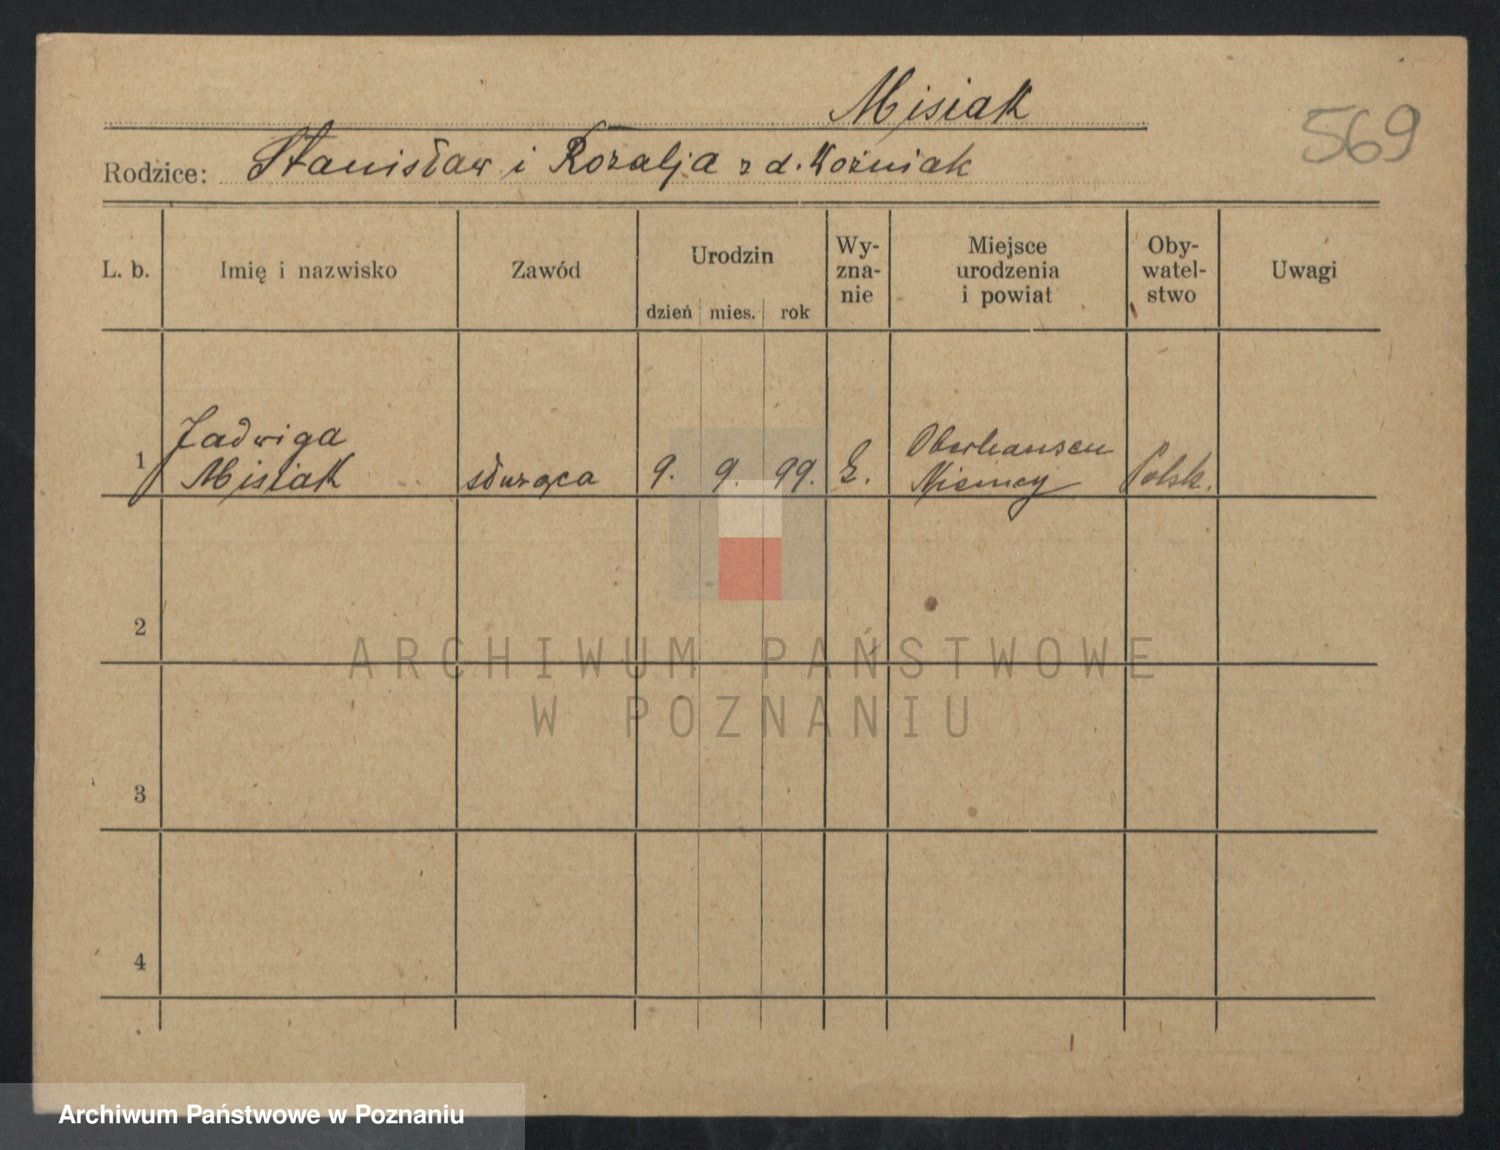 Misiak
569
Rodzice: Stanisław i Rozalja z d. Woźniak
L. b.
Imię i nazwisko
Zawód
Urodzin
dzień mies. rok
Wy-
zna-
nie
Miejsce
urodzenia
i powiat
Oby-
watel-
stwo
Uwagi
1
Jadwiga
Misiak
służąca
9. 9. 99.
Oberhausen
Niemcy
Polsk.
2
3
4
ARCHIWUM PAŃSTWOWE
W POZNANIU
Archiwum Państwowe w Poznaniu